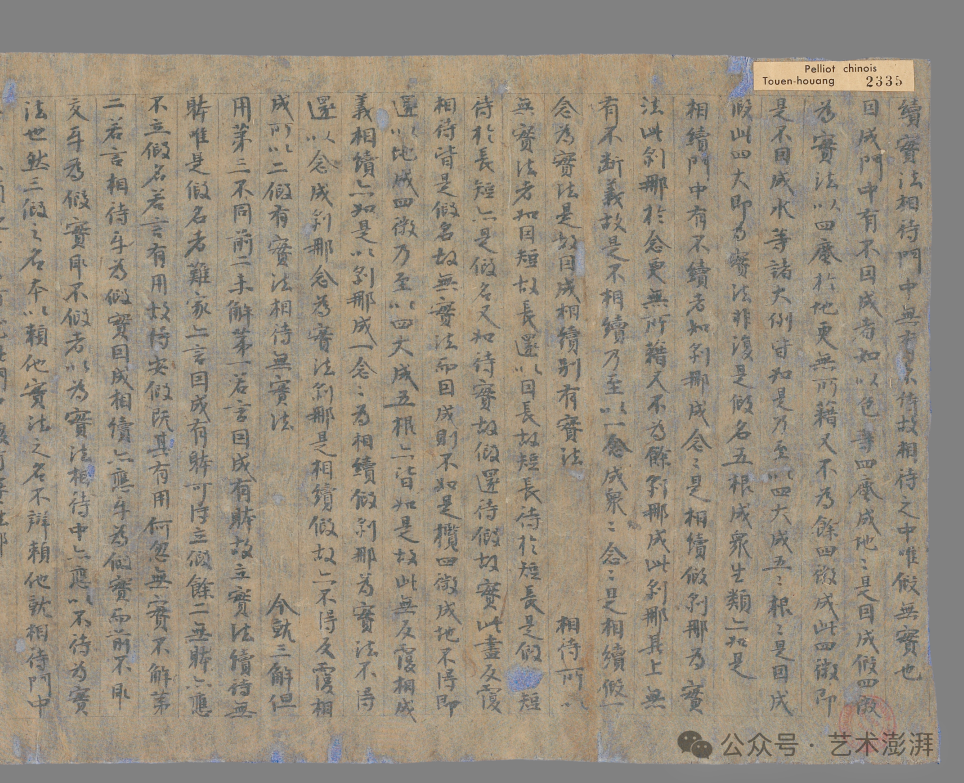 Pelliot chinois
Touen-houang 2335
續實法相待門中無有不待故相待之中唯假無實也
因成門中有不因成者如以色等四塵成地〻是因成假四微
為實法以四塵於地更無所藉又不為餘四微成此四微即
是不因成水等諸大例皆如是乃至以四大成五〻根〻是因成
假此四大即為實法非復是假名五根成衆生類亦如是
相續門中有不續者如剎那成念〻是相續假剎那為實
法此剎那於念更無所藉又不為餘剎那成此剎那其上無
有不斷義故是不相續乃至以一念成衆〻念〻是相續假一
念為實法是故因成相續別有實法 相待所以
無實法者如因短故長還以因長故短長待於短長是假短
待於長短亦是假名又如待實故假還待假故實此盡反覆
相待皆是假名故無實法而因成則不如是攬四微成地不得即
還以地成四微乃至以四大成五根亦皆如是故此無反覆相成
義相續亦如是以剎那成一念〻為相續假剎那為實法不得
還以念成剎那念為實法剎那是相續假故亦不得反覆相
成可以二假有實法相待無實法 今就三解但
用第三不同前二未解第一若言因成有體故立實法續待無
體唯是假名者難家亦言因成有體可得立假餘二無體亦應
不立假名若言有用故得安假既其有用何忽無實不解第
二若言相待年為假實因成相續亦應年為假實而前不即
交年為假實耶不假者以為實法相待中亦應以不待為實
法也然三假之名本以賴他實法之名不辯賴他就相待門中
公众号·艺术澎湃